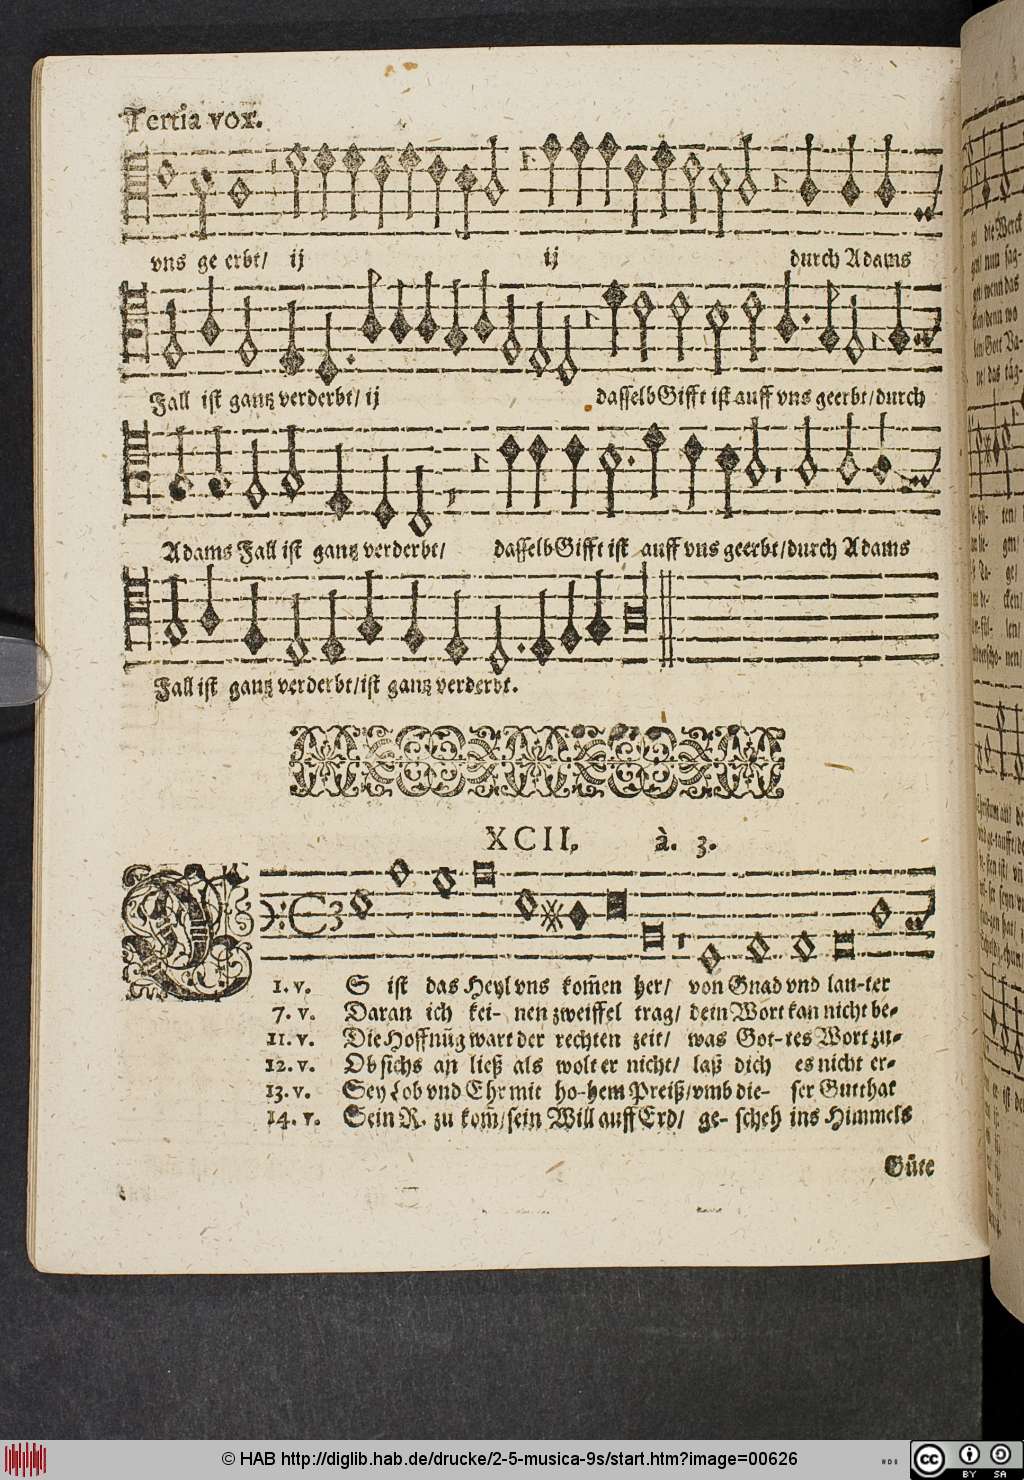 Tertia vox.
vns ge erbt/ ij ij durch Adams
Fall ist gantz verderbt/ ij dasselb Gifft ist auff vns geerbt/durch
Adams Fall ist gantz verderbt/ dasselb Gifft ist auff vns geerbt/durch Adams
Fall ist gantz verderbt/ist gantz verderbt.
XCII. à. 3.
1. v. S ist das Heyl vns kom̃en her/ von Gnad vnd lau-ter
7. v. Daran ich kei- nen zweiffel trag/ dein Wort kan nicht be-
11. v. Die Hoffnũg wart der rechten zeit/ was Got-tes Wort zu-
12. v. Ob sichs an ließ als wolt er nicht/ laß dich es nicht er-
13. v. Sey Lob vnd Ehr mit ho-hem Preiß/vmb die- ser Gutthat
14. v. Sein R. zu kom̃/sein Will auff Erd/ ge- scheh ins Himmels
Güte
© HAB http://diglib.hab.de/drucke/2-5-musica-9s/start.htm?image=00626
cc BY SA